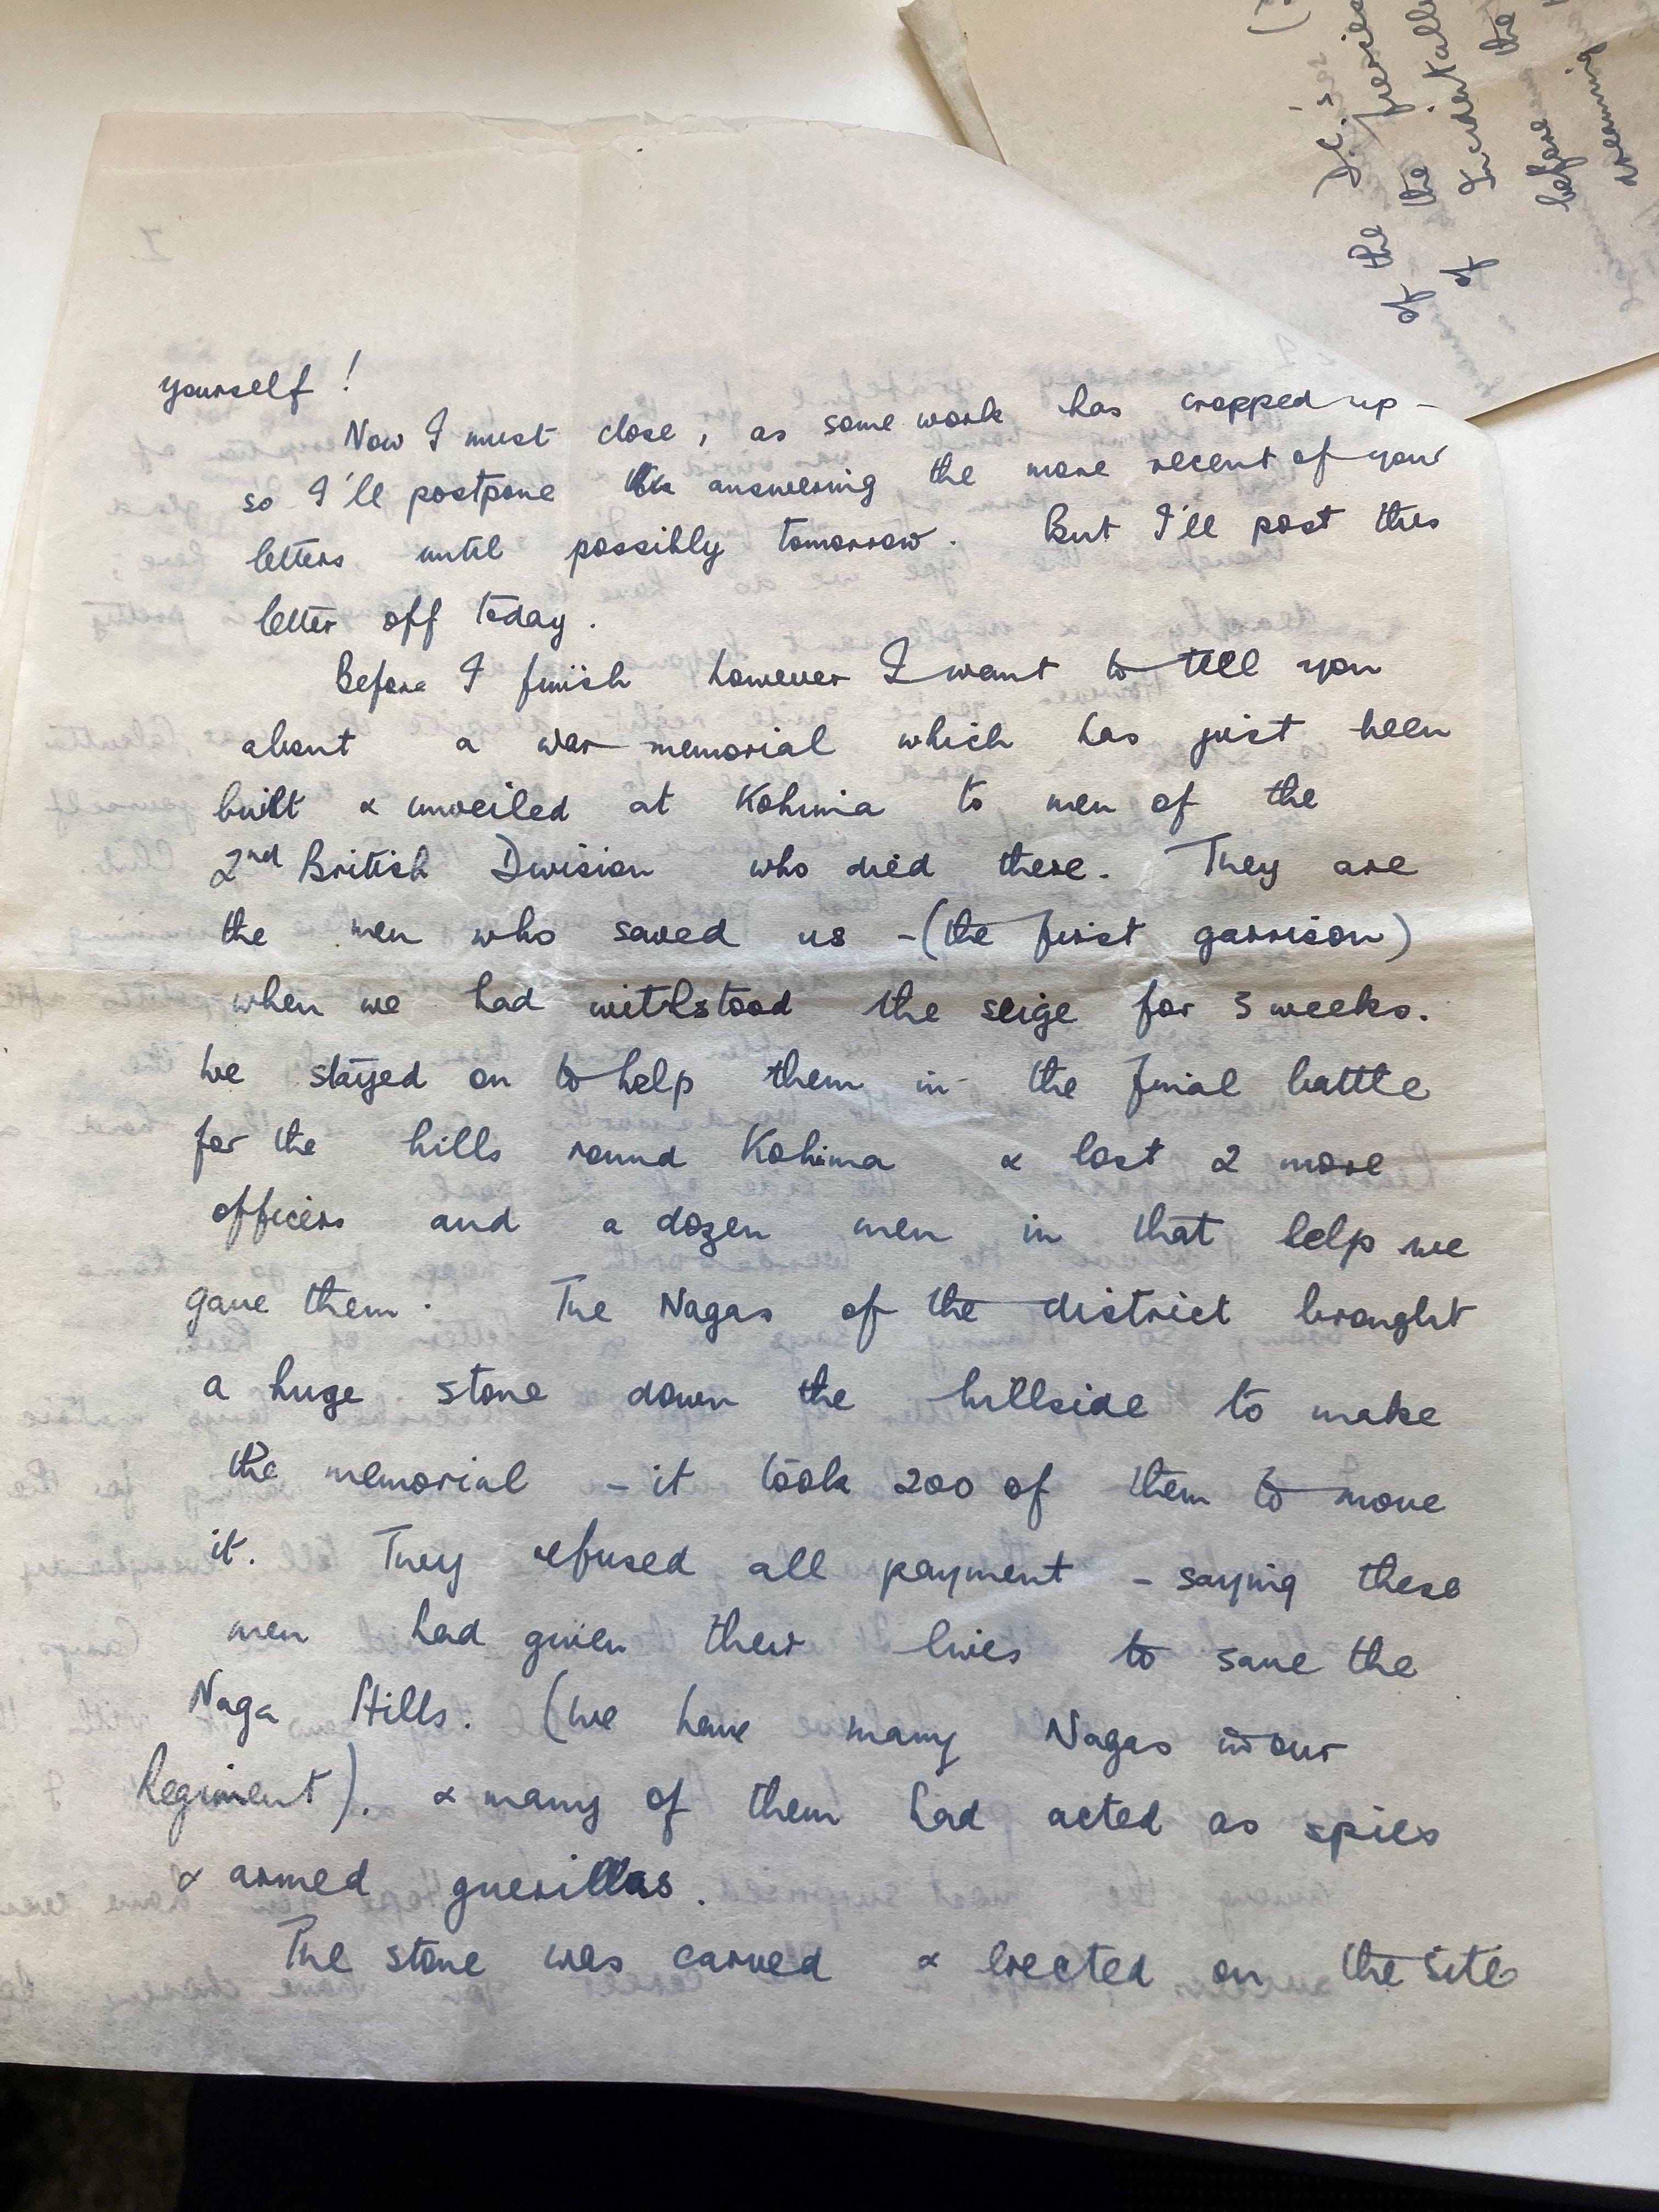 yourself!
Now I must close, as some work has cropped up -
so I'll postpone answering the more recent of your
letters until possibly tomorrow. But I'll post this
letter off today.
Before I finish however I want to tell you
about a war memorial which has just been
built & unveiled at Kohima to men of the
2nd British Division who died there. They are
the men who saved us - (the first garrison)
when we had withstood the seige for 3 weeks.
We stayed on to help them in the final battle
for the hills round Kohima & lost 2 more
officers and a dozen men in that help we
gave them. The Nagas of the district brought
a huge stone down the hillside to make
the memorial - it took 200 of them to move
it. They refused all payment - saying these
men had given their lives to save the
Naga Hills. (We have many Nagas in our
Regiment). & many of them had acted as spies
& armed guerillas.
The stone was carved & erected on the site
of the
of the
Incidentall
before the
dreaming